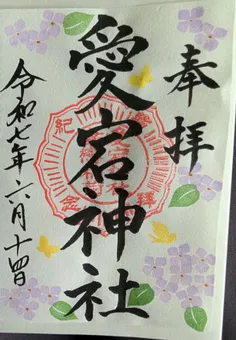 奉拝
愛宕神社
令和七年六月十四日